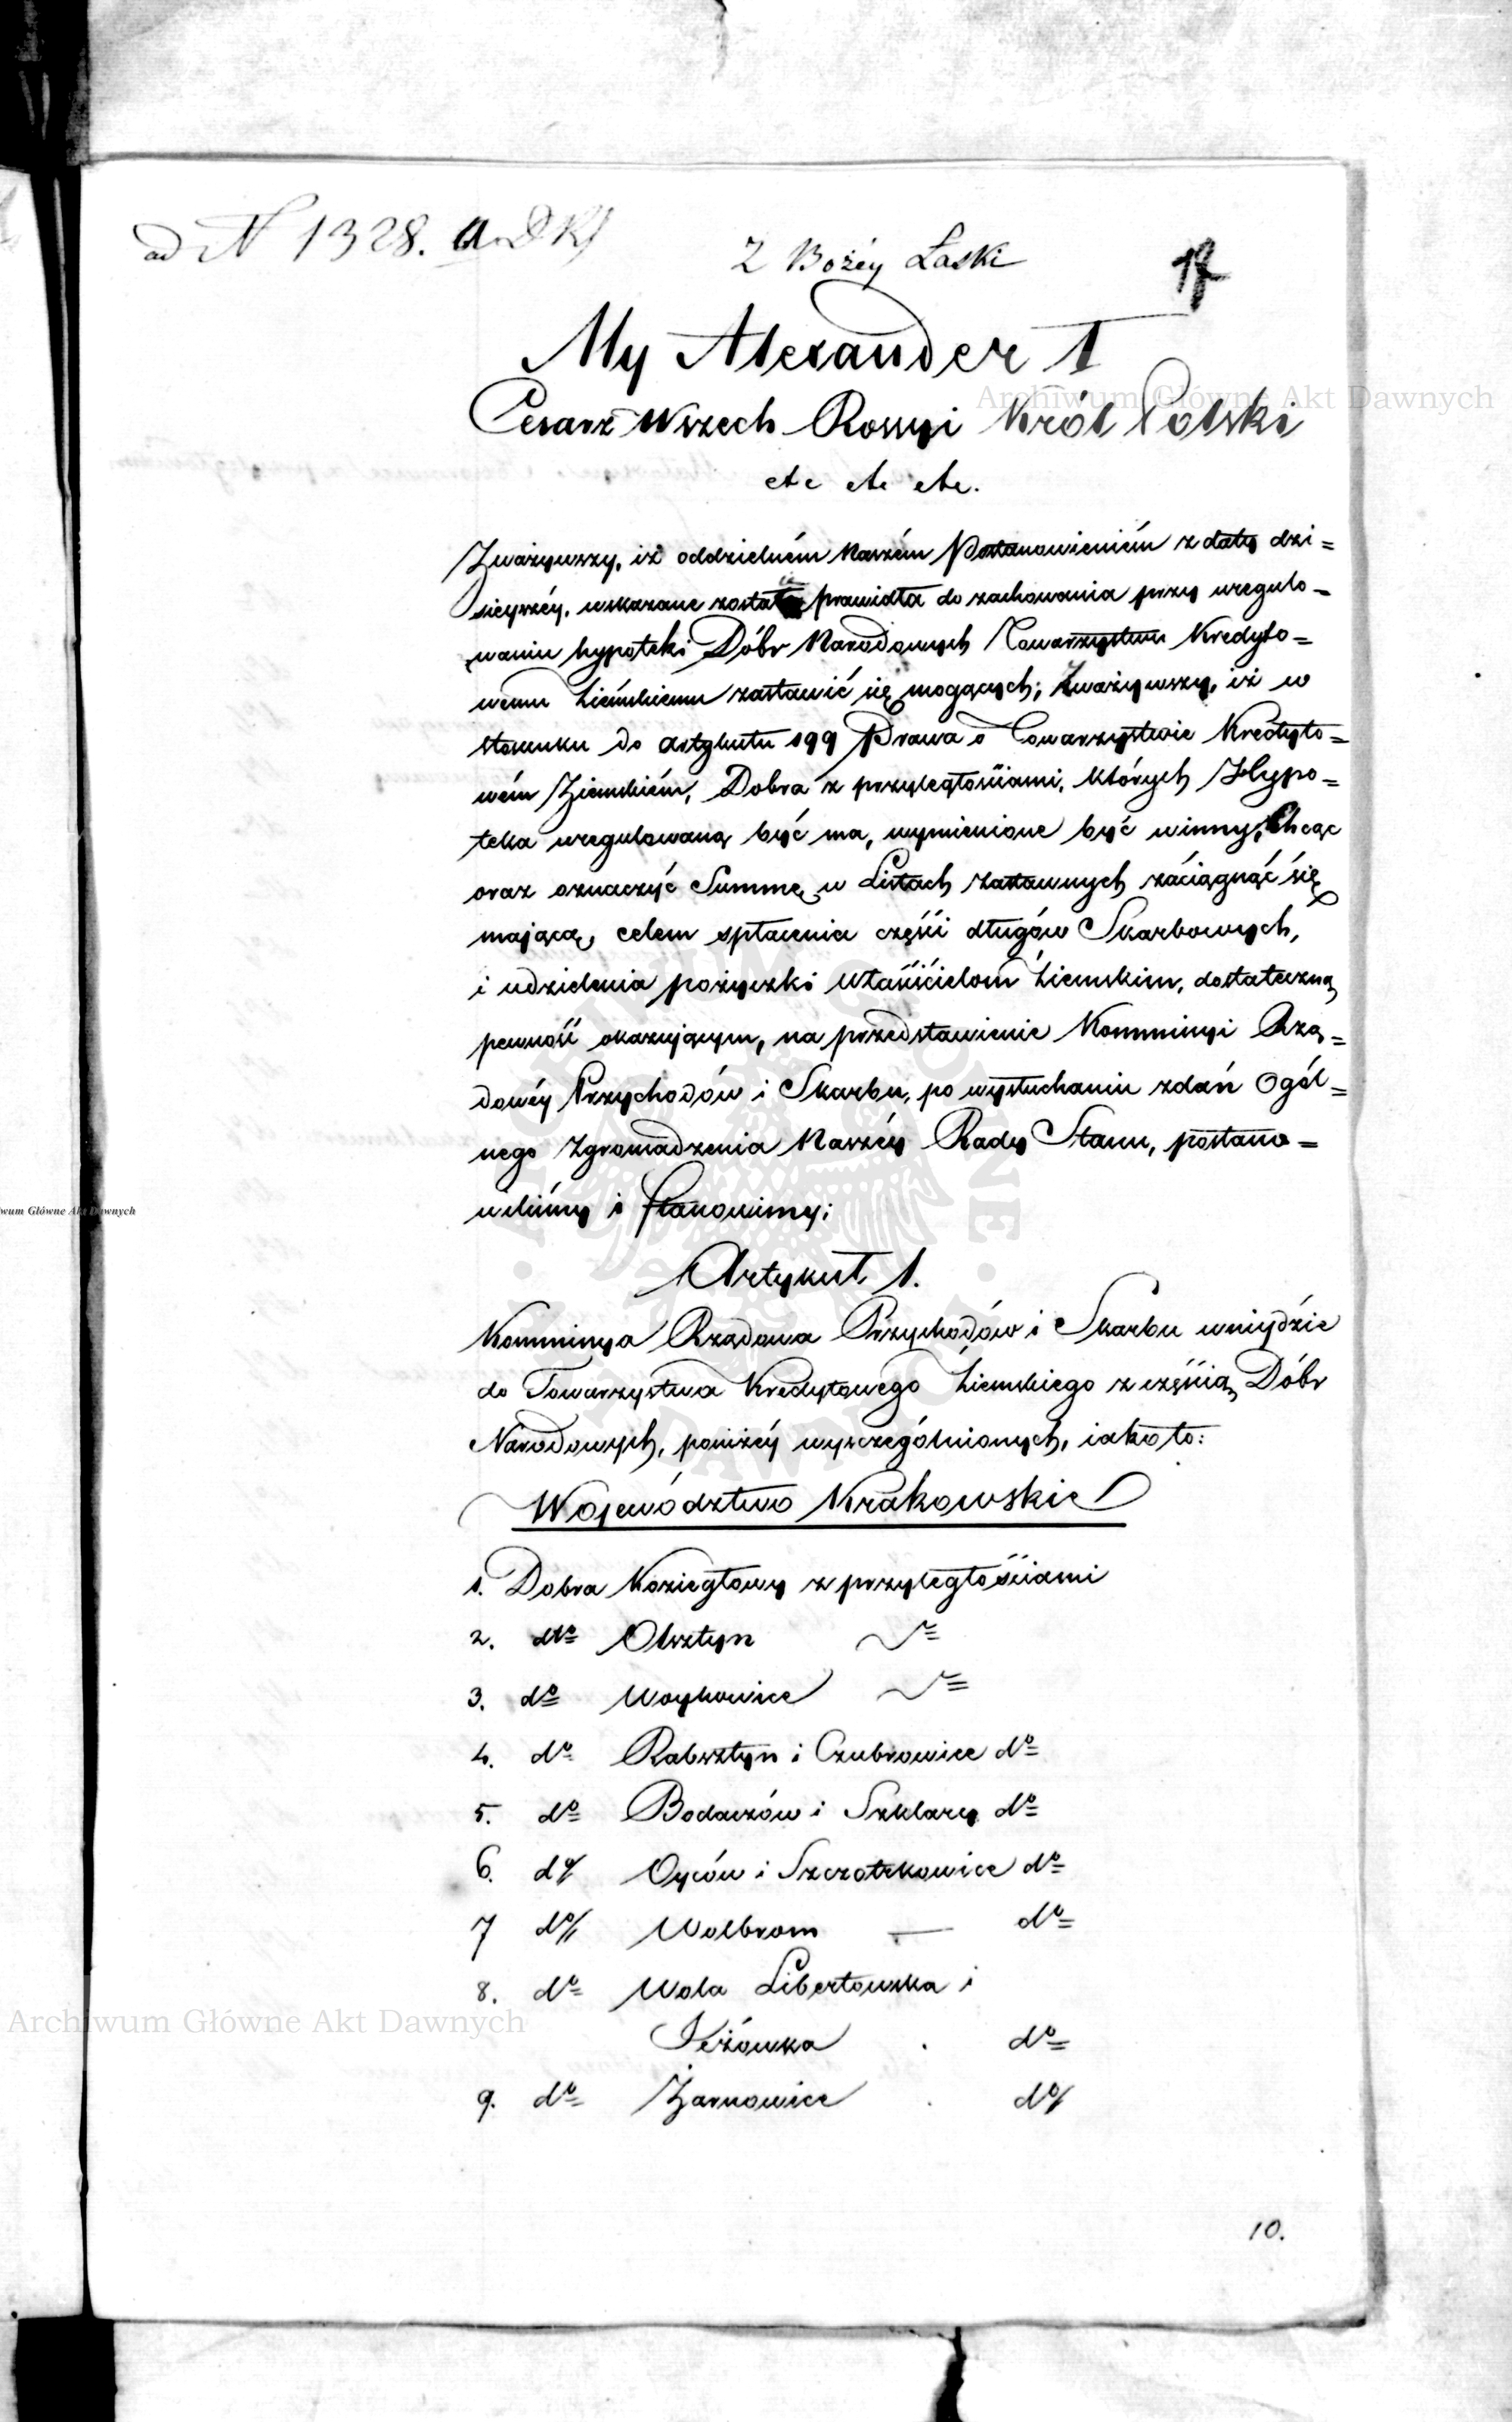 ad N 1328.
Z Bożéy Łaski
17
My Alexander I
Cesarz Wszech Rossyi Król Polski
etc etc etc.
Zważywszy, iż oddzielném Naszém Postanowieniém z daty dzi=
sieyszéy, wskazane zostały prawidła do zachowania przy uregulo=
waniu hypoteki Dóbr Narodowych Towarzystwu Kredyto=
wemu Ziemskiemu zastawić się mogących; Zważywszy, iż w
stosunku do artykułu 199 Prawa o Towarzystwie Kredyto=
wém Ziemskiém, Dobra z przyległościami, których Hypo=
teka uregulowaną być ma, wymienione być winny; Chcąc
oraz oznaczyć Summę w Listach zastawnych zaciągnąć się
mającą, celem spłacenia części długów Skarbowych,
i udzielenia pożyczki Właścicielom Ziemskim, dostateczną
pewność okazującym, na przedstawienie Kommissyi Rzą=
dowéy Przychodów i Skarbu, po wysłuchaniu zdań Ogól=
nego Zgromadzenia Naszéy Rady Stanu, postano=
wiliśmy i stanowimy;
Artykuł 1.
Kommissya Rządowa Przychodów i Skarbu wniydzie
do Towarzystwa Kredytowego Ziemskiego z częścią Dóbr
Narodowych, poniżéy wyszczególnionych, iako to:
Województwo Krakowskie
1. Dobra Koziegłowy z przyległościami
2. dto Olsztyn
3. do Woykowice
4. do Rabsztyn i Czubrowice do
5. do Bodaczów i Szklary do
6. do Oyców i Szczotkowice do
7 do Wolbrom — do
8. do Wola Libertowska i
Jeżówka do
9. do Żarnowice do
10.
Archiwum Główne Akt Dawnych
wum Główne Akt Dawnych
Archiwum Główne Akt Dawnych